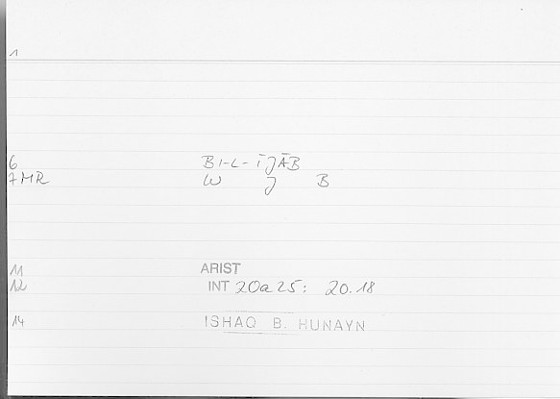 1
6 BI-L-ĪJĀB
7 MR W J B
11 ARIST
12 INT 20a25: 20.18
14 ISHAQ B. HUNAYN